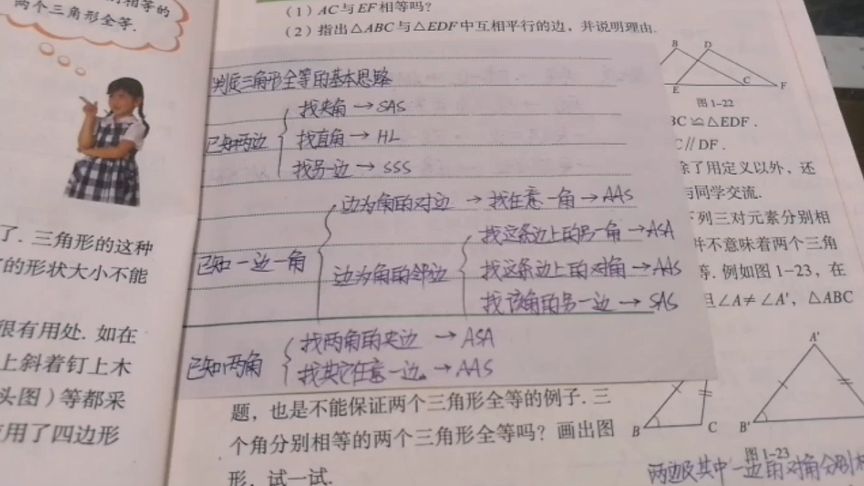 相等的
两个三角形全等.
(1) AC与EF相等吗?
(2) 指出△ABC与△EDF中互相平行的边，并说明理由.
判定三角形全等的基本思路
已知两边
找夹角→SAS
找直角→HL
找另一边→SSS
已知一边一角
边为角的对边→找任意一角→AAS
边为角的邻边
找这条边上的另一角→ASA
找这条边上的对角→AAS
找该角的另一边→SAS
已知两角
找两角的夹边→ASA
找其它任意一边→AAS
B D
E C F
图1-22
BC≌△EDF.
C∥DF.
除了用定义以外，还
与同学交流.
下列三对元素分别相
并不意味着两个三角
等. 例如图1-23，在
且∠A≠∠A′，△ABC
了. 三角形的这种
的形状大小不能
很有用处. 如在
上斜着钉上木
头图）等都采
用了四边形
题，也是不能保证两个三角形全等的例子. 三
个角分别相等的两个三角形全等吗？画出图
形，试一试.
A′
B C B′
图1-23
两边及其中一边的对角分别相